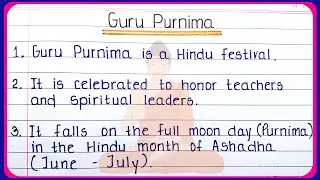 Guru Purnima
1. Guru Purnima is a Hindu festival.
2. It is celebrated to honor teachers
and spiritual leaders.
3. It falls on the full moon day (Purnima)
in the Hindu month of Ashadha
(June - July).